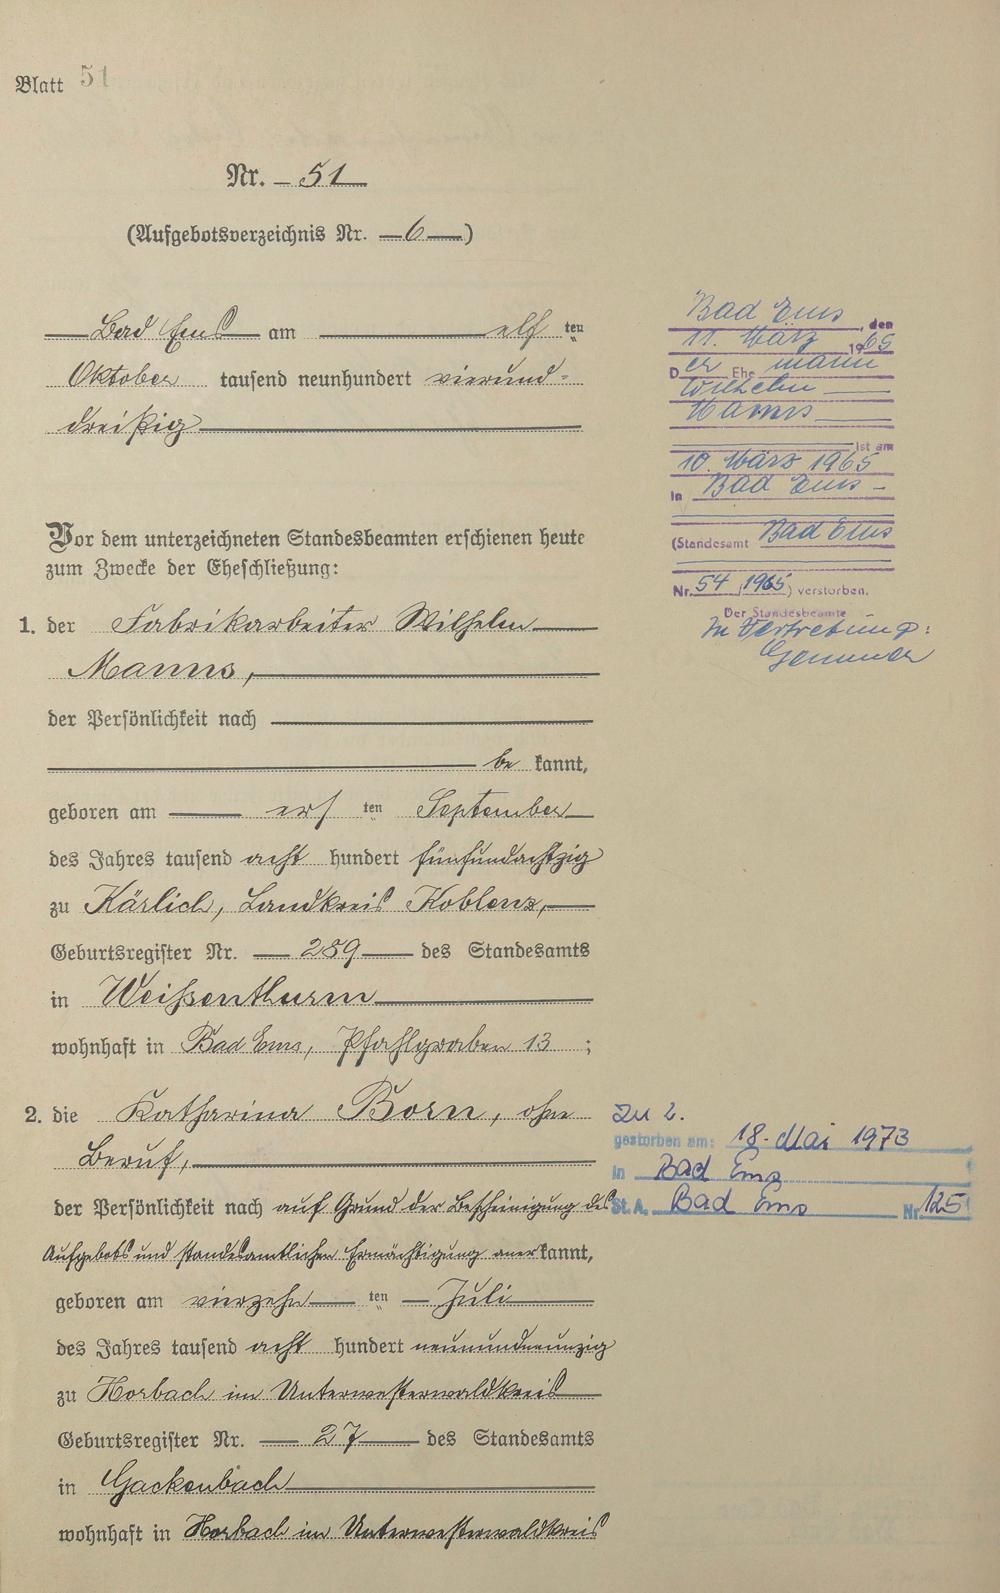 Blatt 51
Nr. 51
(Aufgebotsverzeichnis Nr. 6)
Bad Ems am elf ten
Oktober tausend neunhundert vierund-
dreißig
Vor dem unterzeichneten Standesbeamten erschienen heute
zum Zwecke der Eheschließung:
1. der Fabrikarbeiter Wilhelm
Manns,
der Persönlichkeit nach
be kannt,
geboren am ers ten September
des Jahres tausend acht hundert fünfundachtzig
zu Kärlich, Landkreis Koblenz,
Geburtsregister Nr. 289 des Standesamts
in Weißenthurm
wohnhaft in Bad Ems, Pfahlgraben 13 ;
2. die Katharina Born, ohne
Beruf,
der Persönlichkeit nach auf Grund der Bescheinigung des
Aufgebots und standesamtlichen Ermächtigung aner kannt,
geboren am vierzehn ten Juli
des Jahres tausend acht hundert neunundneunzig
zu Horbach im Unterwesterwaldkreis
Geburtsregister Nr. 27 des Standesamts
in Gackenbach
wohnhaft in Horbach im Unterwesterwaldkreis
Bad Ems, den
11. März 1965
Der Ehe mann
Wilhelm
Manns
ist am
10. März 1965
in Bad Ems -
(Standesamt Bad Ems
Nr. 54 / 1965) verstorben.
Der Standesbeamte
In Vertretung:
Zu 2.
gestorben am: 18. Mai 1973
in Bad Ems
St. A. Bad Ems Nr. 125